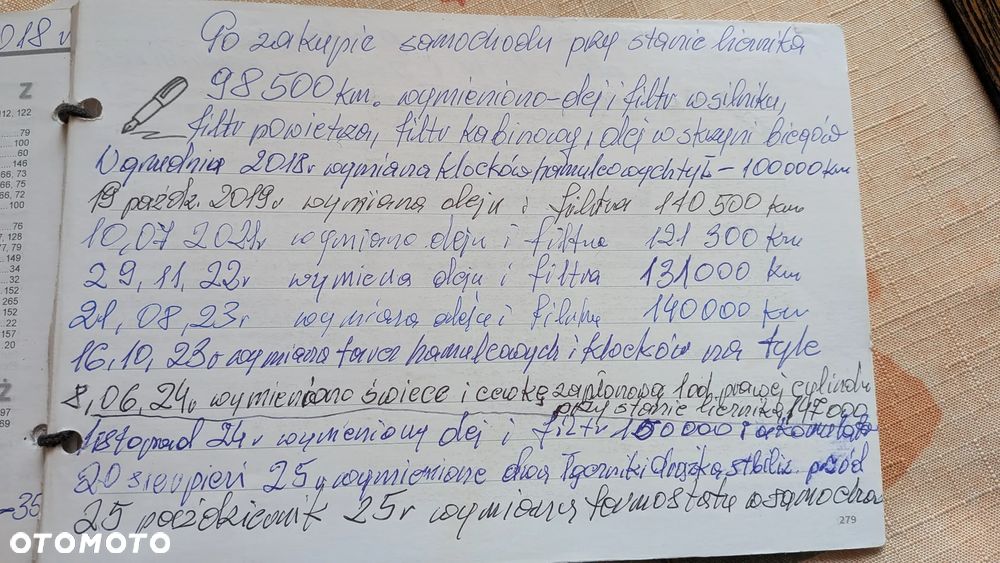 018 r
Po zakupie samochodu przy stanie licznika
98 500 km. wymieniono - olej i filtr w silniku,
filtr powietrza, filtr kabinowy, olej w skrzyni biegów
W grudniu 2018r wymiana klocków hamulcowych tył - 100 000 km
19 paźdz. 2019r wymiana oleju i filtra 110 500 km
10,07 2021r wymiana oleju i filtra 121 300 km
29, 11, 22r wymiena oleju i filtra 131000 km
21, 08, 23r wymiana oleju i filtra 140000 km
16, 10, 23r wymiana tarcz hamulcowych i klocków na tyle
8, 06, 24r wymieniono świece i cewkę zapłonową 1 od prawej cylindra
przy stanie licznika 147 000
listopad 24r wymieniony olej i filtr 150 000 i akumulator
20 sierpień 25r wymienione dwa łączniki drążka stbiliz. przód
25 październik 25r wymiana termostatu w samocho
Z
112, 122
79
100
60
146
66, 73
66, 75
66, 72
100
76
7, 128
77, 79
149
34
32
152
265
152
22
157
20
Ż
97
69
-35
279
OTOMOTO